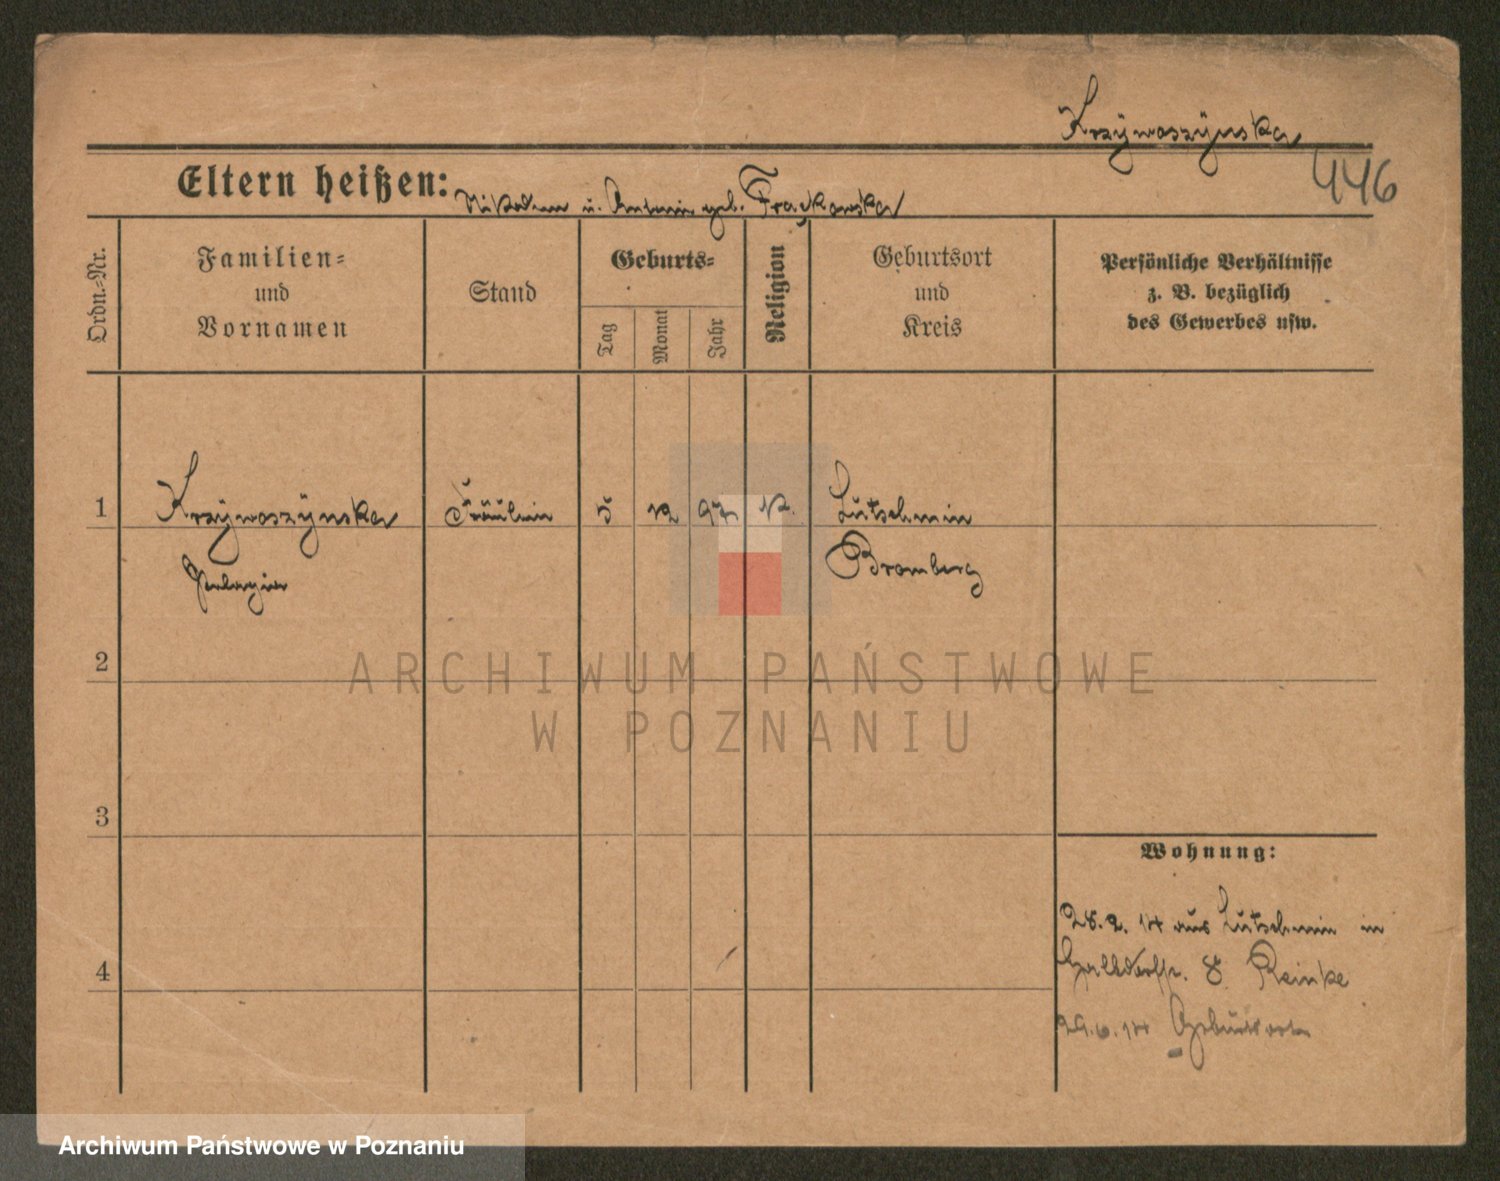 Krzÿwoszÿnska
446
Eltern heißen: Nikodem u. Antonie geb. Frackowska
Ordn.-Nr.
Familien-
und
Vornamen
Stand
Geburts-
Tag
Monat
Jahr
Religion
Geburtsort
und
Kreis
Persönliche Verhältnisse
z. B. bezüglich
des Gewerbes usw.
1 Krzÿwoszÿnska Fräulein 5 12 97 K. Lutschmin
Pelagia Bromberg
2
ARCHIWUM PAŃSTWOWE
W POZNANIU
3
Wohnung:
28.2.14 aus Lutschmin in
8 Reinke
4
29.6.14 Geburtsort
Archiwum Państwowe w Poznaniu